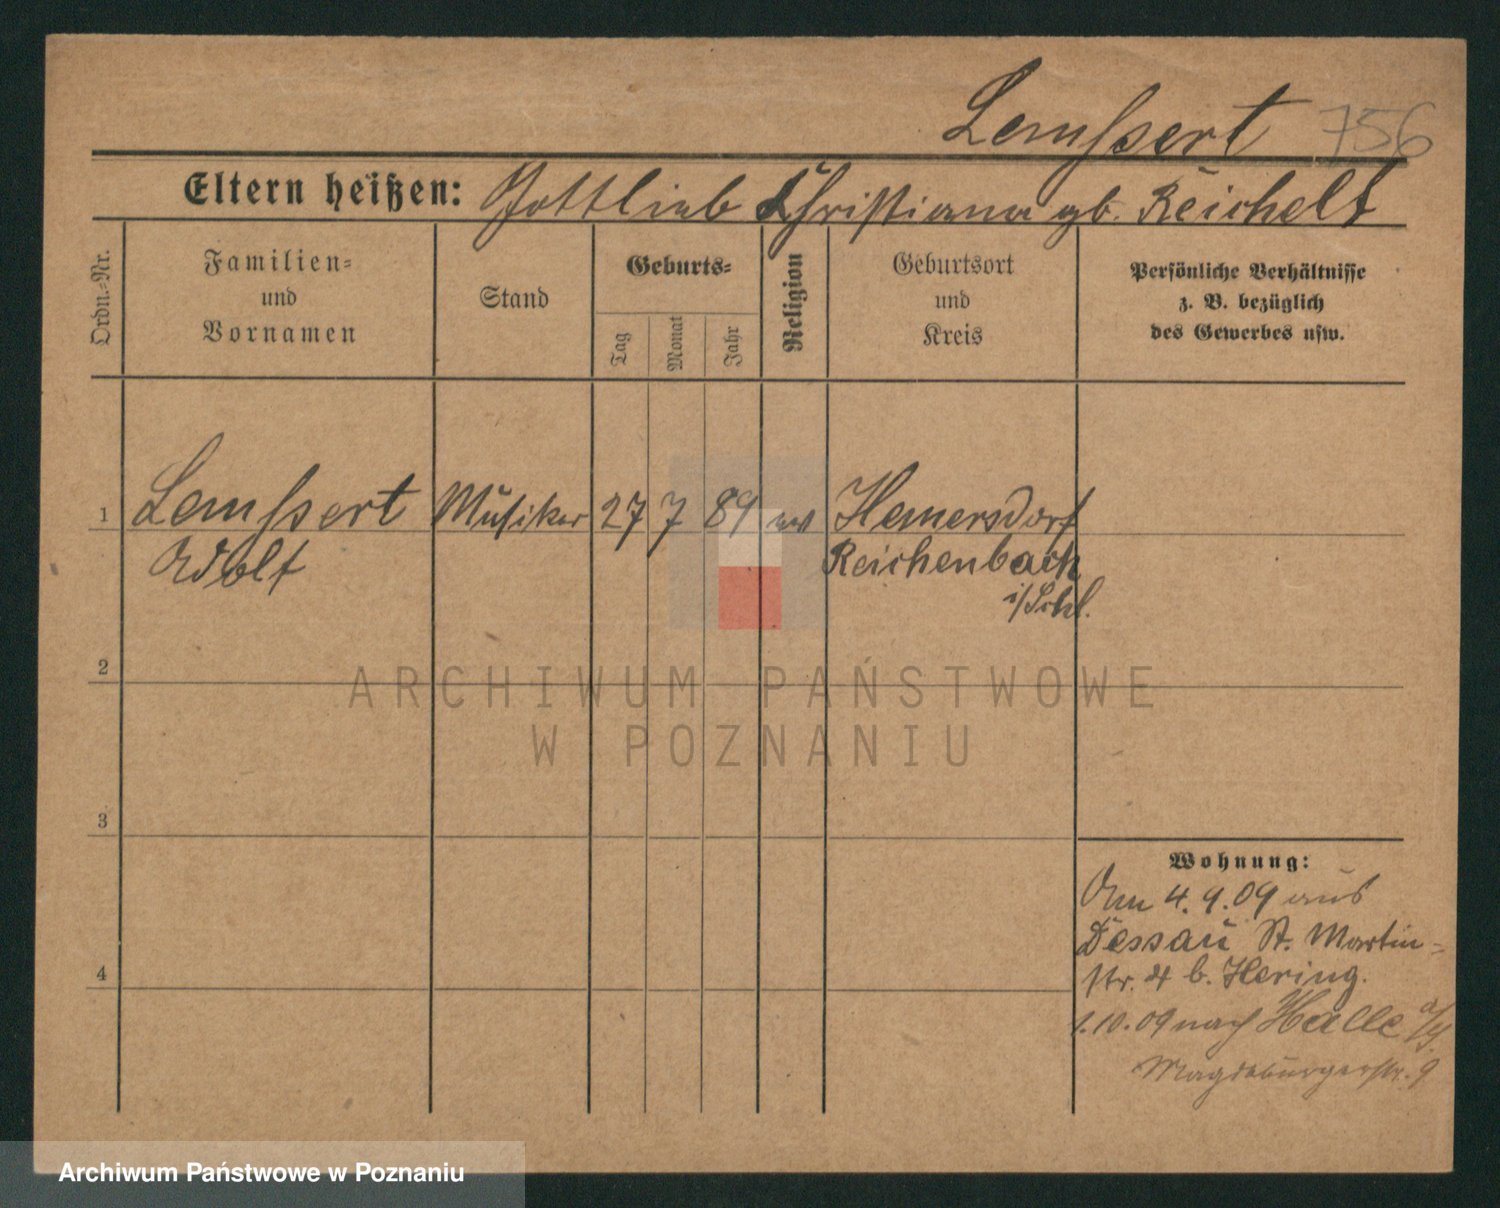 Lemssert 756
Eltern heißen: Gottlieb Christiana gb. Reichelt
Ordn.-Nr.
Familien-
und
Vornamen
Stand
Geburts-
Tag
Monat
Jahr
Religion
Geburtsort
und
Kreis
Persönliche Verhältnisse
z. B. bezüglich
des Gewerbes usw.
1 Lemssert Musiker 27 7 89 ev Hemersdorf
Adolf Reichenbach
i/Schl.
2
ARCHIWUM PAŃSTWOWE
W POZNANIU
3
Wohnung:
Am 4.9.09 aus
Dessau St. Martin-
str. 4 b. Hering.
4
1.10.09 nach Halle a/S.
Magdeburgerstr. 9
Archiwum Państwowe w Poznaniu